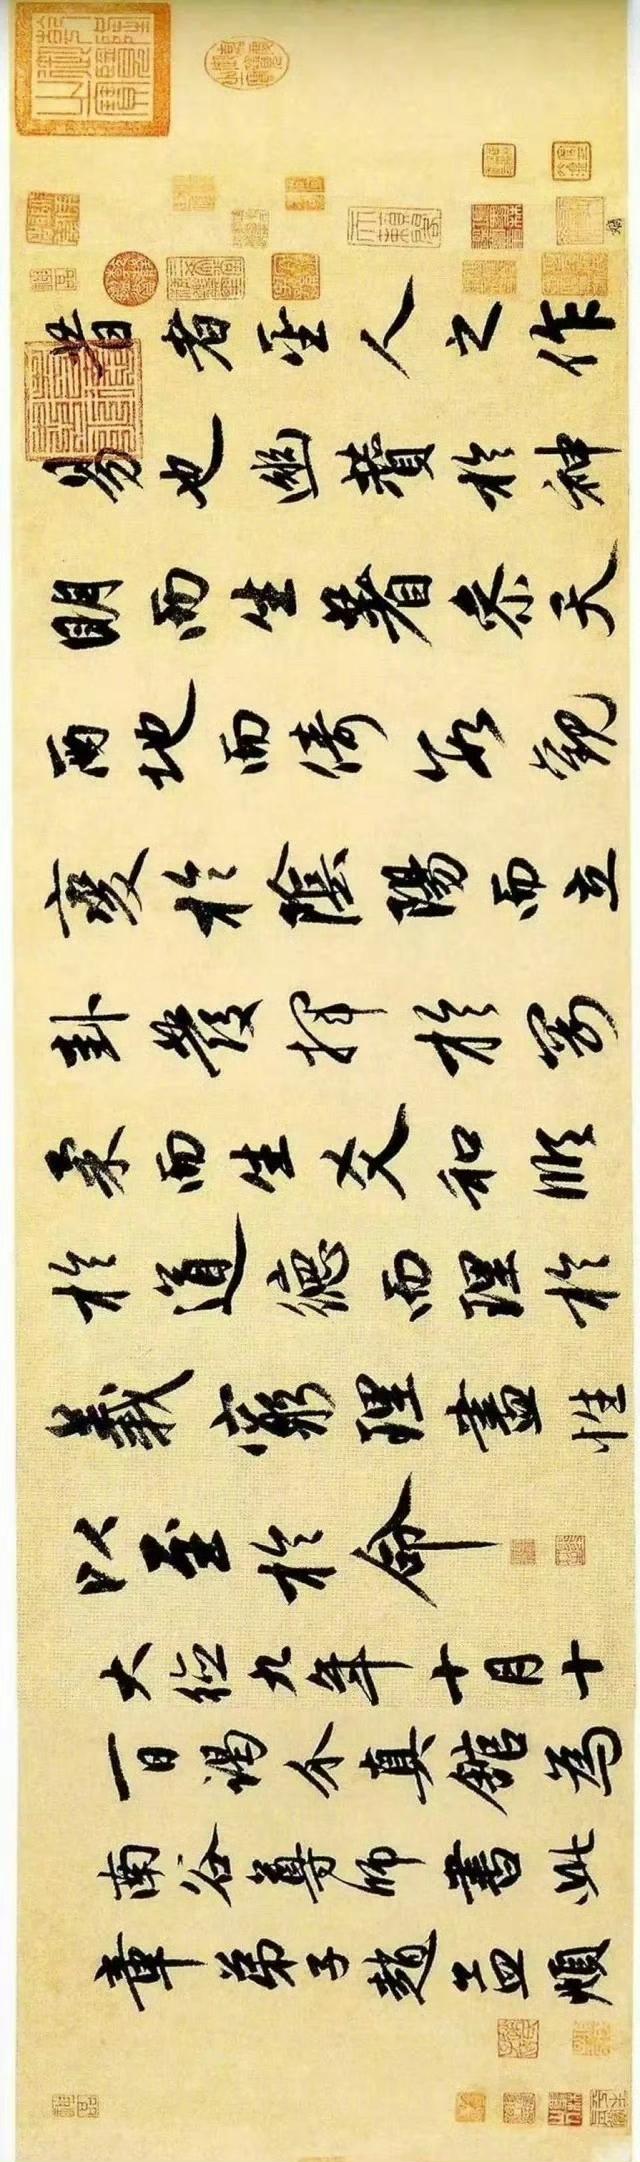 昔者圣人之作
易也幽贊於神
明而生蓍叅天
兩地而倚數觀
變於陰陽而立
卦發揮於剛
柔而生爻和順
於道德而理於
義窮理盡性
以至於命
大德九年十月十
一日謁介真館為
南谷尊師書此
章弟子趙孟頫